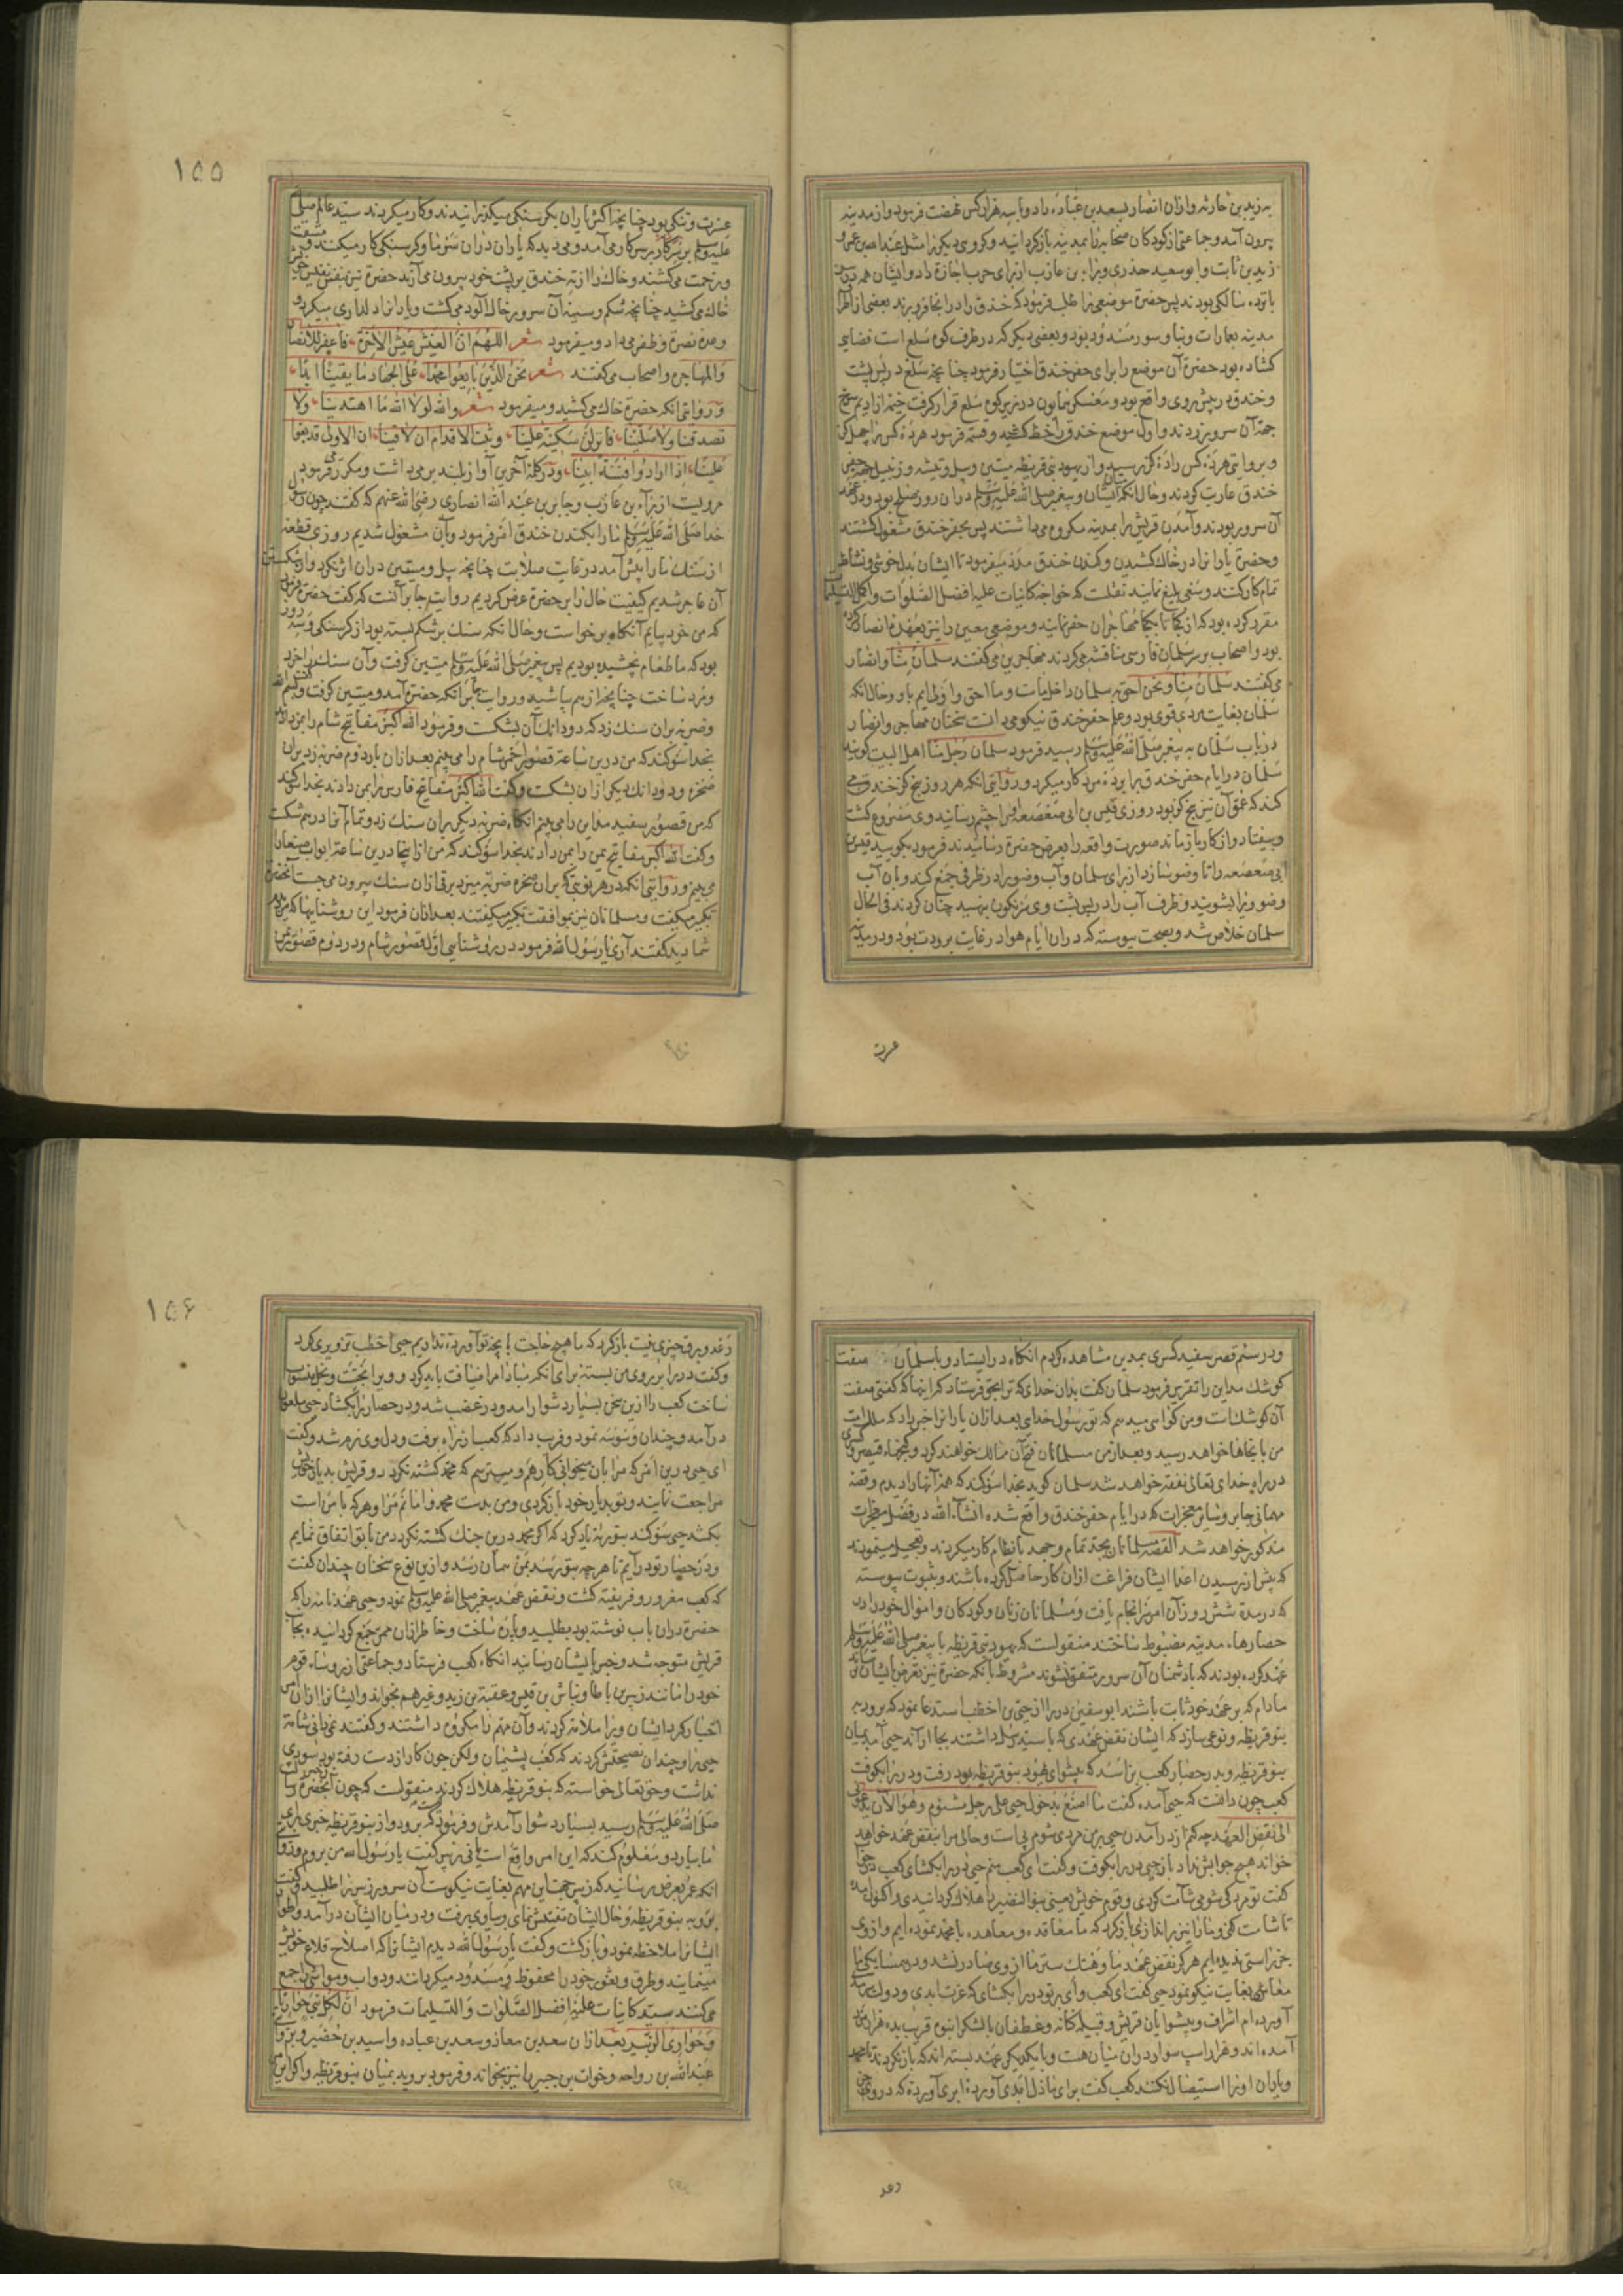 به زید بن حارثه و از آن انصار بسعد بن عباده داد و با سه هزار کس نهضت فرمود و از مدینه
بیرون آمد و جماعتی از کودکان صحابه را بمدینه باز کردانید و کروهی دیکر را مثل عبدالله بن عمر و
زید بن ثابت و ابو سعید خدری و براء بن عازب از برای حرب اجازة داد و ایشان همه در سن
پانزده سالکی بودند پس حضرة موضعی را طلب فرمود که خندق را در انجا فرو برند بعضی از اطراف
مدینه بعمارات و بنا و سور مسدود بود و بعضی دیکر که در طرف کوه سلع است فضای
کشاده بود حضرة آن موضع را برای حفر خندق اختیار فرمود چنانچه سلع در پس پشت
و خندق در پیش روی واقع بود و معسکر همایون در زیر کوه سلع قرار کرفت خیمه از ادیم سرخ
جهة آن سرور زدند و اول موضع خندق را خط کشید و قسمة فرمود هر ده کس را چهل کز
و بروایتی هر ده کس را ده کز رسید و از یهود بنی قریظه میتین و بیل و تیشه و زنبیل جهة حفر
خندق عاریت کردند و حال آنکه میان ایشان و پیغمبر صلی الله علیه وسلم دران روز صلح بود و در عهد
آن سرور بودند و آمدن قریش را بمدینه مکروه می داشتند پس بحفر خندق مشغول کشتند
و حضرة یاران را در خاک کشیدن و کندن خندق مدد میفرمود تا ایشان بدل خوشی و نشاط
تمام کار کنند و سعی بلیغ نمایند نقلست که خواجه کاینات علیه افضل الصلوات و اکمل التسلیمات
مقرر کرده بود که از یکجا تا بیکجا مهاجران حفر نمایند و موضعی معین را نیز بعهده انصار کرده
بود و اصحاب بر سر سلمان فارسی مناقشه می کردند مهاجرین می کفتند سلمان منا و انصار
می کفتند سلمان منا و نحن احق به سلمان داخل ماست و ما احق و اولی ایم باو و حال آنکه
سلمان بغایت مردی قوی بود و علم حفر خندق نیکو می دانست سخنان مهاجر و انصار
در باب سلمان به پیغمبر صلی الله علیه وسلم رسید فرمود سلمان رجل منا اهل البیت کویند
سلمان در ایام حفر خندق برابر ده مرد کار میکرد و روایتی آنکه هر روز پنج کز خندق می
کند که عمق آن نیز پنج کز بود روزی قیس بن ابی صعصعه او را چشم رسانید وی مصروع کشت
و بیفتاد و از کار بازماند صورت واقعه را بعرض حضرة رسانیدند فرمود بکویید قیس بن
ابی صعصعه را تا وضو سازد از برای سلمان و آب وضو را در ظرفی جمع کند و بان آب
وضو ویرا بشویند و ظرف آب را در پس پشت وی سرنکون بنهید چنان کردند فی الحال
سلمان خلاص شد و بصحت پیوسته که دران ایام هوا در غایت برودت بود و در مدینه
عسرت
۱۵۵
عسرت و تنکی بود چنانچه اکثر یاران بکرسنکی میکذرانیدند و کار میکردند سید عالم صلی
علیه وسلم بر سر کار می آمد و می دید که یاران دران سرما و کرسنکی کار میکنند و مشقت
و زحمت می کشند و خاک را از ته خندق بر پشت خود بیرون می آرند حضرة نیز بنفس نفیس خویش
خاک می کشید چنانچه شکم و سینه آن سرور خاک آلود می کشت و یاران را دلداری میکرد و
وعده نصرة و ظفر می داد و میفرمود شعر اللهم ان العیش عیش الآخرة فاغفر للانصار
والمهاجره و اصحاب می کفتند شعر نحن الذین بایعوا محمدا علی الجهاد ما بقینا ابدا
و روایتی آنکه حضرة خاک می کشید و میفرمود شعر والله لولا الله ما اهتدینا ولا
تصدقنا ولا صلینا فانزلن سکینة علینا وثبت الاقدام ان لاقینا ان الاولی قد بغوا
علینا اذا ارادوا فتنة ابینا و در کلمه آخرین آواز بلند بر می داشت و مکرر می فرمود
مرویست از براء بن عازب و جابر بن عبد الله انصاری رضی الله عنهم که کفتند چون رسول
خدا صلی الله علیه وسلم ما را بکندن خندق امر فرمود و بآن مشغول شدیم روزی قطعه
از سنک ما را پیش آمد در غایت صلابت چنانچه بیل و میتین دران اثر نکرد و از شکستن
آن عاجز شدیم کیفیت حال را بر حضرة عرض کردیم روایت جابر آنست که کفت حضرة فرمود
که من خود بیایم آنکاه برخواست و حال آنکه سنک بر شکم بسته بود از کرسنکی و سه روز
بود که ما طعام نچشیده بودیم پس پیغمبر صلی الله علیه وسلم میتین کرفت و آن سنک را خرد
و مرد ساخت چنانچه از هم بپاشید و روایت براء آنکه حضرة آمد و میتین کرفت و کفت بسم الله
و ضربه بران سنک زد که دو دانک آن بشکست و فرمود الله اکبر مفاتیح شام را بمن دادند
بخدا سوکند که من درین ساعة قصور احمر شام را می بینم بعد ازان بار دوم ضربه زد بران
صخره و دو دانک دیکر ازان بشکست و کفت الله اکبر مفاتیح فارس را بمن دادند بخدا سوکند
که من قصور سفید مداین را می بینم آنکاه ضربه دیکر بران سنک زد و تمام آنرا در هم شکست
و کفت الله اکبر مفاتیح یمن را بمن دادند بخدا سوکند که من از اینجا درین ساعة ابواب صنعا را
می بینم و روایتی آنکه در هر نوبتی که بران صخره ضربه میزد برقی ازان سنک بیرون می جست آنحضرة
تکبیر میکفت و مسلمانان نیز بموافقت تکبیر میکفتند بعد ازان فرمود این روشناییها که
شما دیدید کفتند آری یا رسول الله فرمود در روشنایی اول قصور شام و در دوم قصور یمن
و در سئم قصر سفید کسری بمداین مشاهده کردم آنکاه در ایستاد و با سلمان صفت
کوشک مداین را تقریر فرمود سلمان کفت بدان خدای که ترا بحق فرستاد که اینها که کفتی صفت
آن کوشک است و من کواهی میدهم که تو رسول خدای بعد ازان یاران را خبر داد که ملک امت
من بانجاها خواهد رسید و بعد از من مسلمانان فتح آن ممالک خواهند کرد و کنجهاء قیصر و کسری
در راه خدای تعالی نفقه خواهد شد سلمان کوید بخدا سوکند که همه آنها را دیدم و قصه
مهمانی جابر و سایر معجزات که در ایام حفر خندق واقع شده انشاء الله در فصل معجزات
مذکور خواهد شد القصه مسلمانان بجد تمام و جهد بانظام کار میکردند و تعجیل مینمودند
که پیش از رسیدن اعدا ایشان فراغت ازان کار حاصل کرده باشند و بثبوت پیوسته
که در مدة شش روز آن امر سرانجام یافت و مسلمانان زنان و کودکان و اموال خود را در
حصارهاء مدینه مضبوط ساختند منقولست که یهود بنی قریظه با پیغمبر صلی الله علیه وسلم
عهد کرده بودند که با دشمنان آن سرور متفق نشوند مشروط بآنکه حضرة نیز تعرض بایشان نرساند
مادام که بر عهد خود ثابت باشند ابوسفین درین اثنا از حیی بن اخطب استدعا نمود که برود به
بنو قریظه و نوعی سازد که ایشان نقض عهدی که با سید رسل داشتند بجا آرند حیی آمد بمیان
بنو قریظه و بدر حصار کعب بن اسد که پیشوای یهود بنو قریظه بود رفت و در را بکوفت
کعب چون دانست که حیی آمده کفت ما اصنع بدخول حیی علی رجل مشئوم وهو الآن یدعونی
الی نقض العهد چه کنم از در آمدن حیی بر من مردی شوم پی است و حالی مرا بنقض عهد خواهد
خواند هیچ جوابش نداد باز حیی در را بکوفت و کفت ای کعب منم حیی در را بکشای کعب
کفت تو مردکی شومی شآمت کردی و قوم خویش یعنی بنو النضیر را هلاک کردانیدی و اکنون آمدی
تا شامت کنی و ما را نیز براندازی باز کرد که ما معاقده و معاهده با محمد نموده ایم و از وی
جز راستی ندیده ایم هرکز نقض عهد ما و هتک ستر ما از وی صادر نشده و در همسایکی با
معاش بغایت نیکو نموده حیی کفت ای کعب وای بر تو در را بکشای که عزت ابدی و دولت
آورده ام اشراف و پیشوایان قریش و قبیله کنانه و غطفان با لشکر انبوه قریب بده هزار مرد
آمده اند و هزار اسپ سوار دران میان هست و با یکدیکر عهد بسته اند که باز نکردند تا محمد
و یاران او را استیصال نکنند کعب کفت برای ما ذل ابدی آوردة ابری آوردة که در وی جز
رعد
۱۵۶
رعد و برق چیزی نیست باز کرد که ما هیچ حاجت بآنچه تو آوردة نداریم حیی اخطب تزویری کرد
و کفت در را بر روی من بسته برای آنکه مبادا مرا ضیافت باید کرد و ویرا بخست و بخل منسوب
ساخت کعب را ازین سخن بسیار دشوار آمد و در غضب شد و در حصار را بکشاد حیی ملعون
در آمد و چندان وسوسه نمود و فریب داد که کعب از راه برفت و دل وی نرم شد و کفت
ای حیی درین امر که مرا بان میخوانی کارهم و میترسم که محمد کشته نکردد و قریش بدیار خویش
مراجعت نمایند و تو بدیار خود باز کردی و من بدست محمد وا مانم مرا و هر که با من است
بکشد حیی سوکند بتوریة یاد کرد که اکر محمد درین جنک کشته نکردد من با تو اتفاق نمایم
و در حصار تو در آیم تا هر چه بتو رسد بمن همان رسد و ازین نوع سخنان چندان کفت
که کعب مغرور و فریفته کشت و نقض عهد پیغمبر صلی الله علیه وسلم نمود و حیی عهد نامه را که
حضرة دران باب نوشته بود بطلبید و پاره ساخت و خاطر ازان ممر جمع کردانیده بجانب
قریش متوجه شد و خبر بایشان رسانید آنکاه کعب فرستاد و جماعتی از رؤساء قوم
خود را مانند زبیر بن باطا و نباش بن قیس و عقبة بن زید و غیرهم بخواند و ایشانرا ازان امر
اخبار کرد ایشان ویرا ملامة کردند و آن مهم را مکروه داشتند و کفتند نمی دانی شآمة
حیی را و چندان نصیحتش کردند که کعب پشیمان ولکن چون کار از دست رفته بود سودی
نداشت و حق تعالی خواسته که بنو قریظه هلاک کردند منقولست که چون این خبر بحضرة رسالت
صلی الله علیه وسلم رسید بسیار دشوار آمدش و فرمود که برود و از بنو قریظه خبری برای
ما بیارد و معلوم کند که این امر واقع است یا نی زبیر کفت یا رسول الله من بروم و روایتی
آنکه عمر بعرض رسانید که زبیر جهت این مهم بغایت نیکوست آن سرور زبیر را طلبید و کفت
برو به بنو قریظه و حال ایشان تفتیش نمای و بیا وی برفت و در میان ایشان در آمد و اطوار
ایشانرا ملاحظه نمود و باز کشت و کفت یا رسول الله دیدم ایشانرا که اصلاح قلاع خویش
مینمایند و طرق و بعثوت خود را محفوظ و مسدود میکردانند و دواب و مواشی را جمع
می کنند سید کاینات علیه افضل الصلوات و التسلیمات فرمود ان لکل نبی حواریا
و حواری الزبیر بعد ازان سعد بن معاذ و سعد بن عباده و اسید بن حضیر و
عبد الله بن رواحه و خوات بن جبیر را نیز بخواند و فرمود بروید بمیان بنو قریظه و اکر این